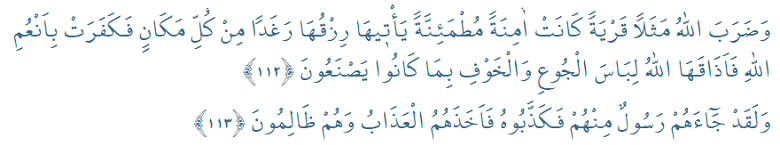 وَضَرَبَ اللّٰهُ مَثَلًا قَرْيَةً كَانَتْ اٰمِنَةً مُطْمَئِنَّةً يَأْت۪يهَا رِزْقُهَا رَغَدًا مِنْ كُلِّ مَكَانٍ فَكَفَرَتْ بِاَنْعُمِ
اللّٰهِ فَاَذَاقَهَا اللّٰهُ لِبَاسَ الْجُوعِ وَالْخَوْفِ بِمَا كَانُوا يَصْنَعُونَ ﴿١١٢﴾
وَلَقَدْ جَٓاءَهُمْ رَسُولٌ مِنْهُمْ فَكَذَّبُوهُ فَاَخَذَهُمُ الْعَذَابُ وَهُمْ ظَالِمُونَ ﴿١١٣﴾